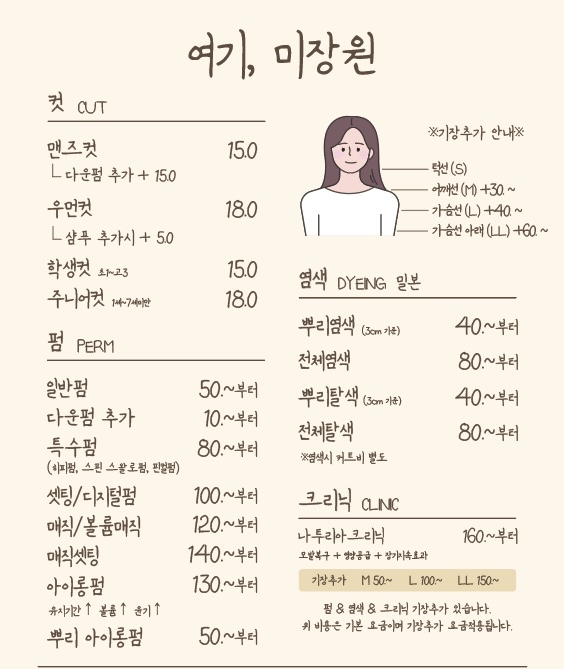 여기, 미장원
컷 CUT
맨즈컷 15.0
└ 다운펌 추가 + 15.0
우먼컷 18.0
└ 샴푸 추가시 + 5.0
학생컷 초1~고3 15.0
주니어컷 1세~7세미만 18.0
펌 PERM
일반펌 50.~부터
다운펌 추가 10.~부터
특수펌 80.~부터
(히피펌, 스핀 스왈로펌, 핀컬펌)
셋팅/디지털펌 100.~부터
매직/볼륨매직 120.~부터
매직셋팅 140.~부터
아이롱펌 130.~부터
유지기간 ↑ 볼륨 ↑ 윤기 ↑
뿌리 아이롱펌 50.~부터
※기장추가 안내※
턱선 (S)
어깨선 (M) +30. ~
가슴선 (L) +40. ~
가슴선 아래 (LL) +60. ~
염색 DYEING 밀본
뿌리염색 (3cm 기준) 40.~부터
전체염색 80.~부터
뿌리탈색 (3cm 기준) 40.~부터
전체탈색 80.~부터
※염색시 커트비 별도
크리닉 CLINIC
나투리아크리닉 160.~부터
모발복구 + 영양공급 + 장기지속효과
기장추가 M 50.~ L. 100.~ LL. 150.~
펌 & 염색 & 크리닉 기장추가 있습니다.
위 비용은 기본 요금이며 기장추가 요금적용됩니다.